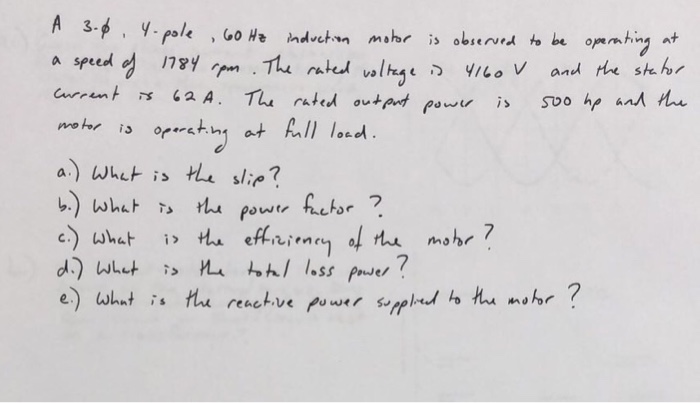 A 3-ϕ, 4-pole, 60 Hz induction motor is observed to be operating at
a speed of 1784 rpm. The rated voltage is 4160 V and the stator
current is 62 A. The rated output power is 500 hp and the
motor is operating at full load.
a.) What is the slip?
b.) What is the power factor?
c.) What is the efficiency of the motor?
d.) What is the total loss power?
e.) What is the reactive power supplied to the motor?